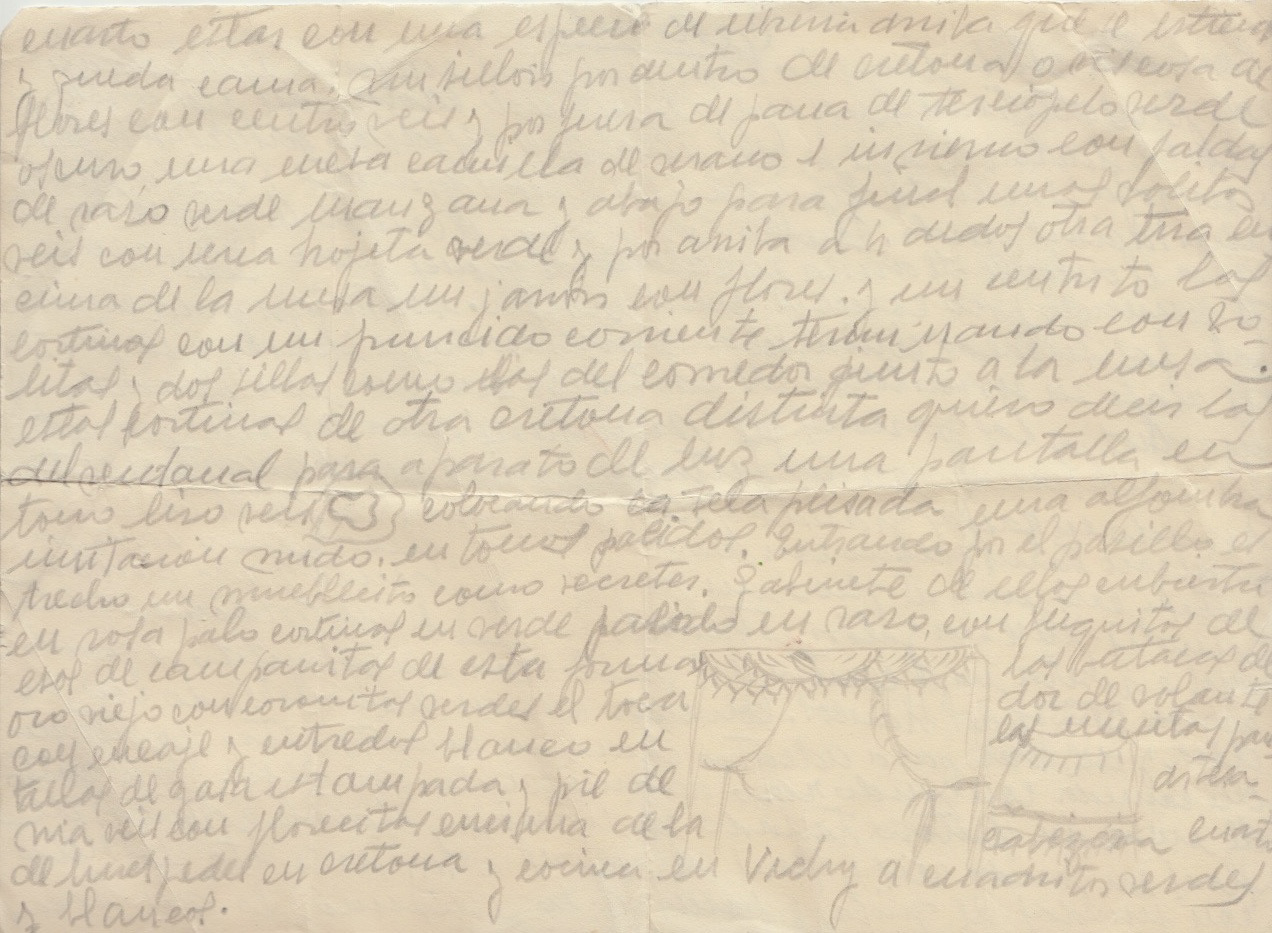 cuarto estar con una especie de arriba que se
y queda cama, un sillón por dentro de cretona o de
flores con centro y por fuera de pana de terciopelo verde
oscuro, una mesa camilla de verano e invierno con faldas
de raso verde manzana y abajo para final unas bolitas
con una hojeta verde y por arriba a 4 dedos otra tira en
cima de la mesa un jarrón con flores. y un centrito las
cortinas con un fruncido corriente terminando con bo-
litas y dos sillas como las del comedor junto a la mesa.
estas cortinas de otra cretona distinta quiero decir las
del ventanal para aparato de luz una pantalla en
tono liso colocando la tela plisada una alfombra
imitación nudo. en tonos palidos. Entrando por el pasillo es
trecho un mueblecito como secreter. Gabinete de ellos cubierta
en rosa palo cortinas en verde palido en raso, con de
esos de campanitas de esta forma las butacas de
oro viejo con verdes el toca dor de volante
con encaje y entredos blanco en las mesitas
tallas de gasa estampada y piel de
con florecitas encima de la cabecera cuarto
de huespedes en cretona y cocina en Vichy a cuadritos verdes
y blancos.